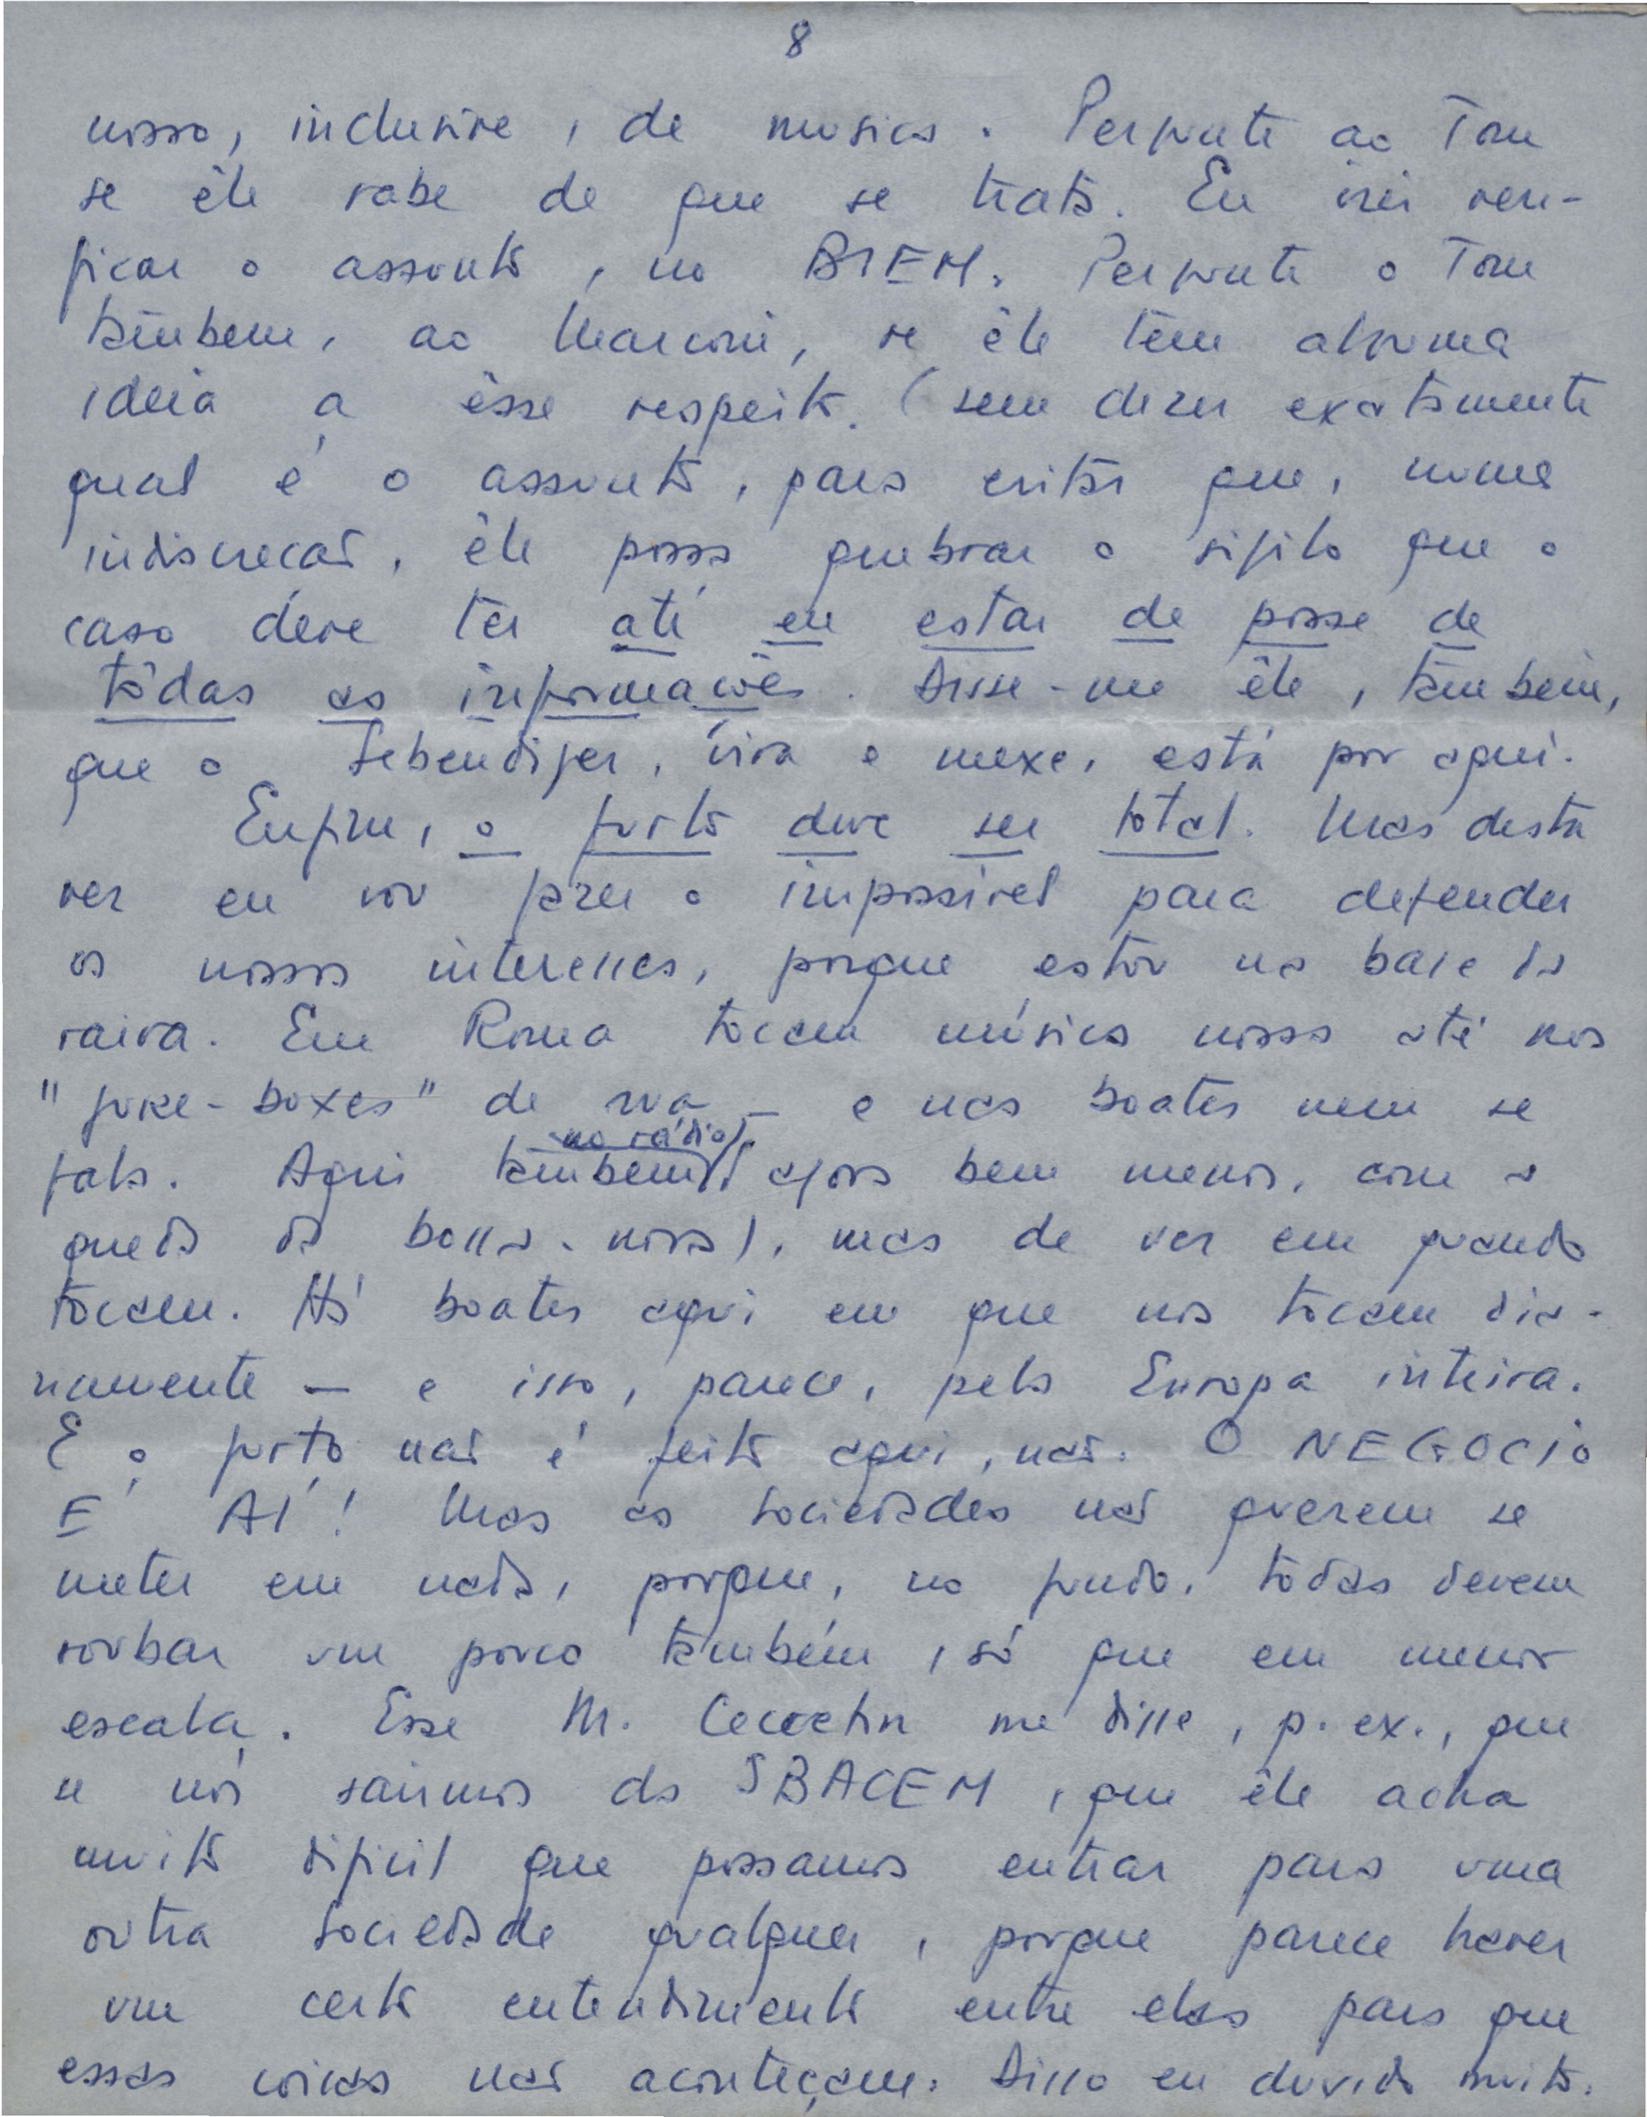 8
nosso, inclusive, de musica. Pergunte ao Tom
se êle sabe de que se trata. Eu irei veri-
ficar o assunto, no BIEM. Pergunte o Tom
também, ao Marconi, se êle têm alguma
ideia a êsse respeito. (sem dizer exatamente
qual é o assunto, para evitar que, numa
indiscrecão, êle possa quebrar o sigilo que o
caso deve ter até eu estar de posse de
tôdas as informações. Disse-me êle, também,
que o Lebendiger, vira e mexe, está por aqui.
Enfim, o furto deve ser total. Mas desta
vez eu vou fazer o impossivel para defender
os nossos interesses, porque estou na base da
raiva. Em Roma tocam música nossa até nos
"juke-boxes" de rua – e nas boates nem se
fala. Aqui também (no rádio, agora bem menos, com a
queda da bossa-nova), mas de vez em quando
tocam. Há boates aqui em que nos tocam dia-
riamente — e isso, parece, pela Europa inteira.
E o furto não é feito aqui, não. O NEGOCIO
É AÍ! Mas as sociedades não querem se
meter em nada, porque, no fundo, tôdas devem
roubar um pouco também, só que em menor
escala. Esse M. me disse, p. ex., que
se nós saírmos da SBACEM, que êle acha
muito dificil que possamos entrar para uma
outra sociedade qualquer, porque parece haver
um certo entendimento entre elas para que
essas coisas não aconteçam. Disso eu duvido muito.